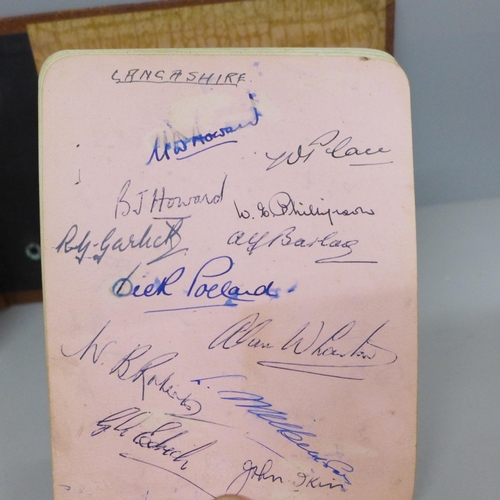 LANCASHIRE
N D Howard
W Place
B J Howard
W. E. Phillipson
R. G. Garlick
Alf Barlow
Dick Pollard
Alan Wharton
W. B. Roberts
G A Edrich
John Ikin